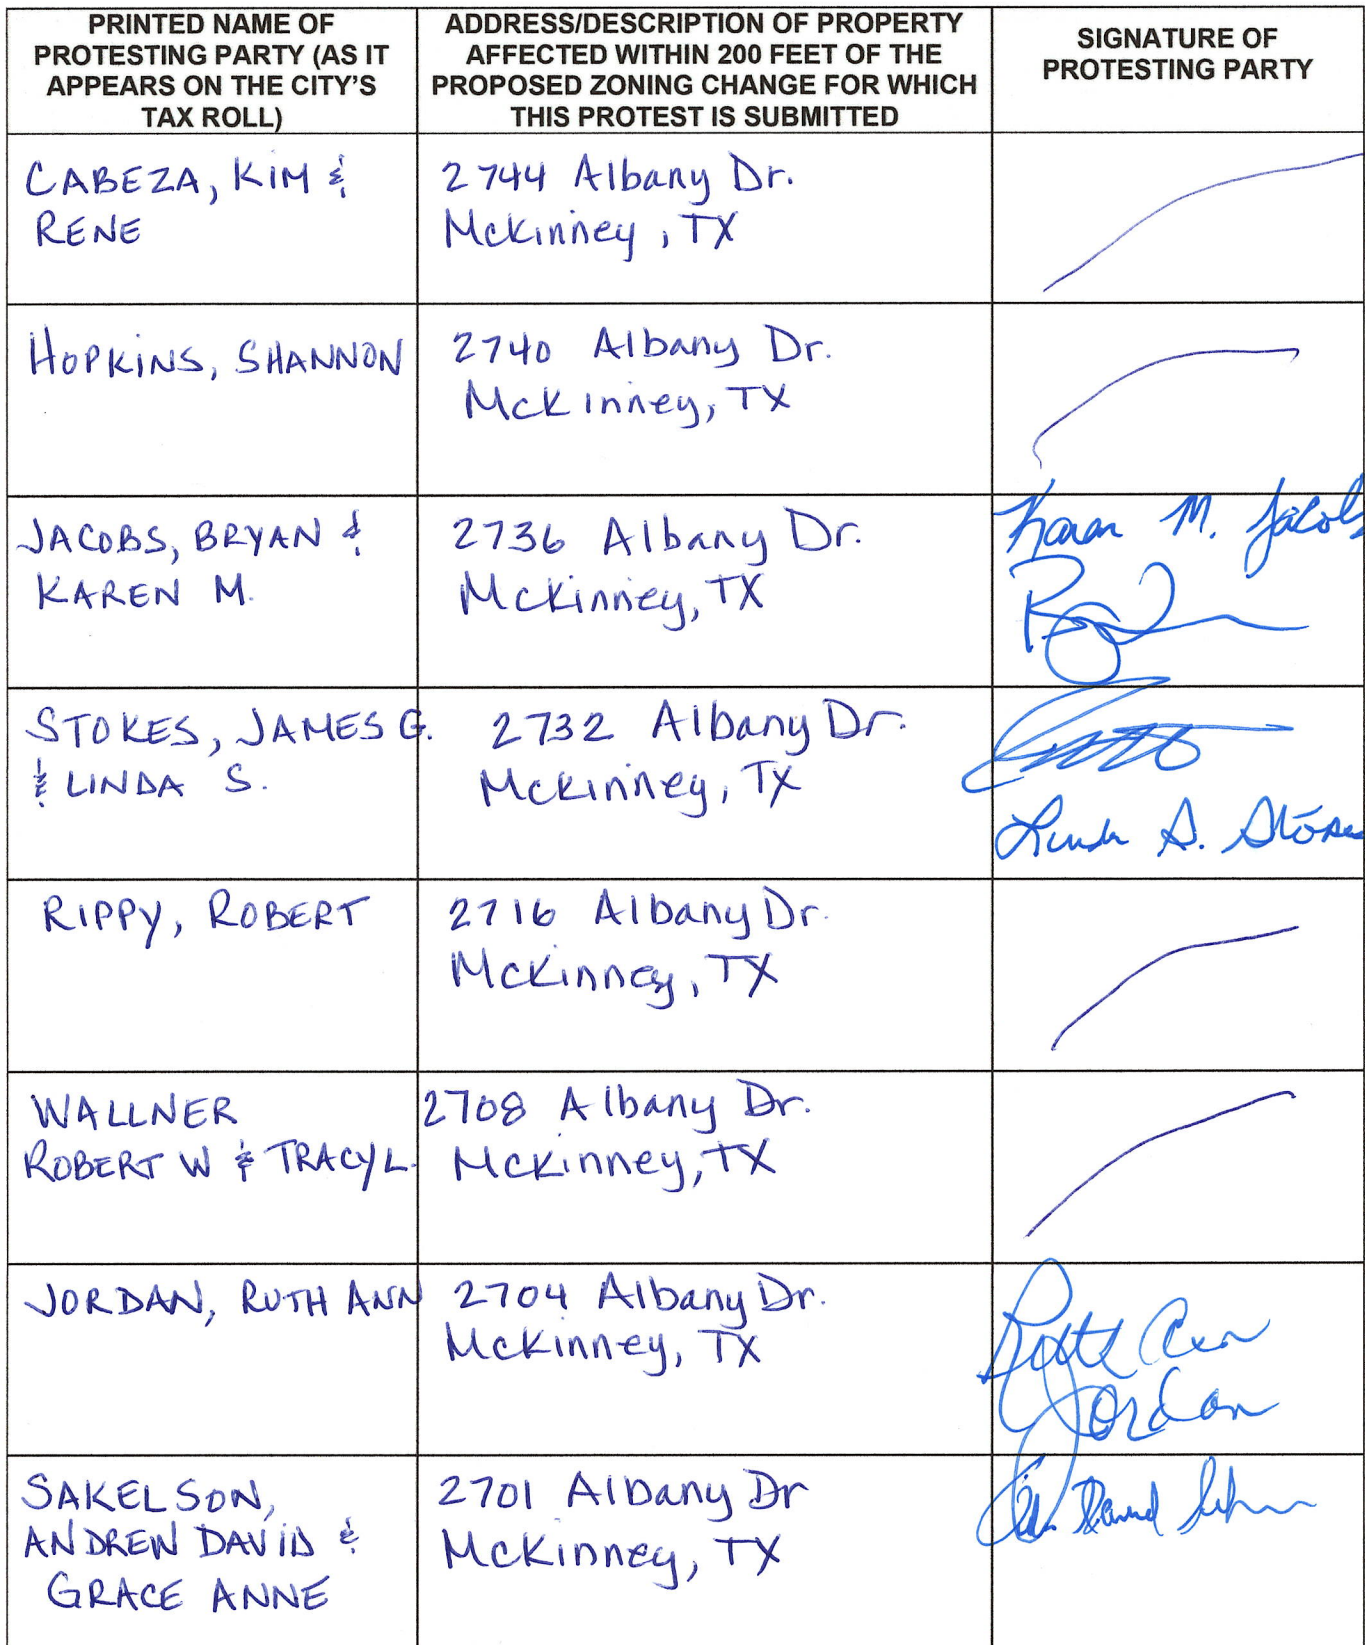 PRINTED NAME OF
PROTESTING PARTY (AS IT
APPEARS ON THE CITY'S
TAX ROLL)
ADDRESS/DESCRIPTION OF PROPERTY
AFFECTED WITHIN 200 FEET OF THE
PROPOSED ZONING CHANGE FOR WHICH
THIS PROTEST IS SUBMITTED
SIGNATURE OF
PROTESTING PARTY
CABEZA, KIM &
RENE
2744 Albany Dr.
McKinney, TX
HOPKINS, SHANNON
2740 Albany Dr.
McKinney, TX
JACOBS, BRYAN &
KAREN M.
2736 Albany Dr.
McKinney, TX
Karen M. Jacobs
STOKES, JAMES G.
& LINDA S.
2732 Albany Dr.
McKinney, TX
Linda S. Stokes
RIPPY, ROBERT
2716 Albany Dr.
McKinney, TX
WALLNER
ROBERT W & TRACY L
2708 Albany Dr.
McKinney, TX
JORDAN, RUTH ANN
2704 Albany Dr.
McKinney, TX
Ruth Ann
Jordan
SAKELSON,
ANDREW DAVID &
GRACE ANNE
2701 Albany Dr
McKinney, TX
David